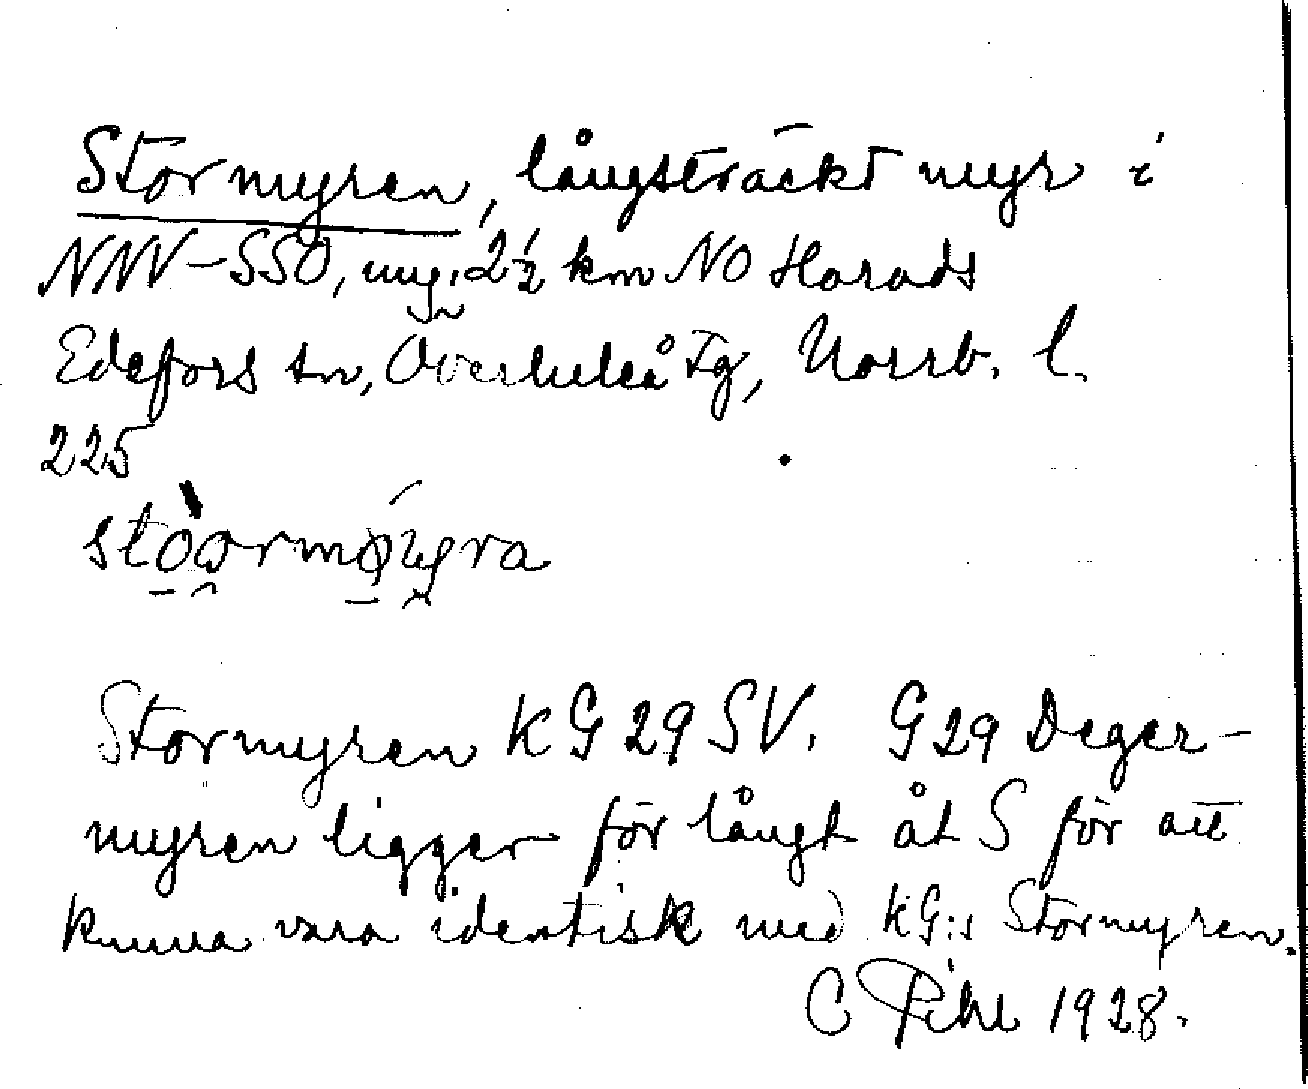 Stormyren, långsträckt myr i
NNV–SSO, ung. 2½ km NO Harads
Edefors sn, Överluleå Tg, Norrb. l.
225

Stormyren KG 29 SV. G 29 Deger-
myren ligger för långt åt S för att
kunna vara identisk med KG:s Stormyren.
C Pihl 1928.